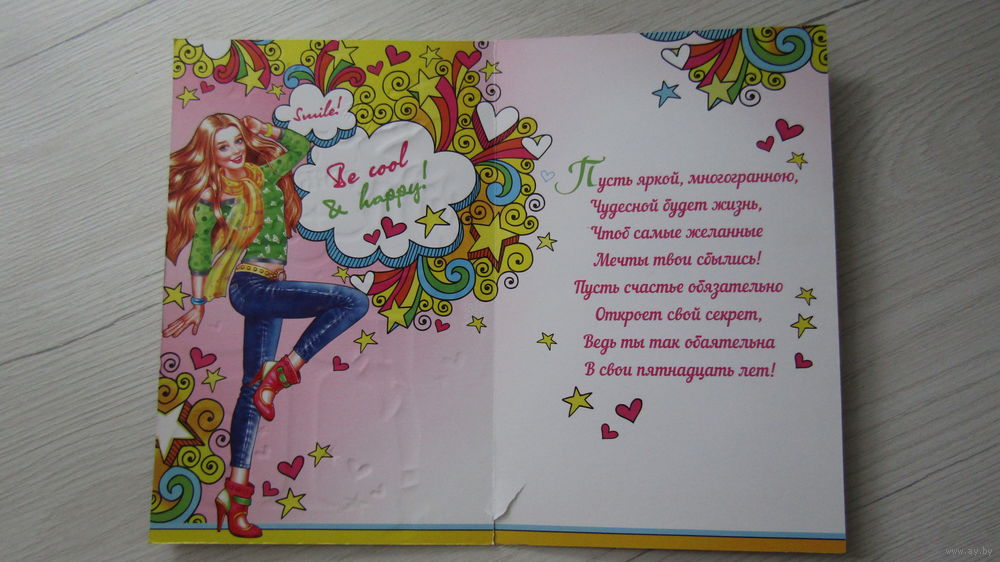 Smile!
Be cool
& happy!
Пусть яркой, многогранною,
Чудесной будет жизнь,
Чтоб самые желанные
Мечты твои сбылись!
Пусть счастье обязательно
Откроет свой секрет,
Ведь ты так обаятельна
В свои пятнадцать лет!
www.ay.by